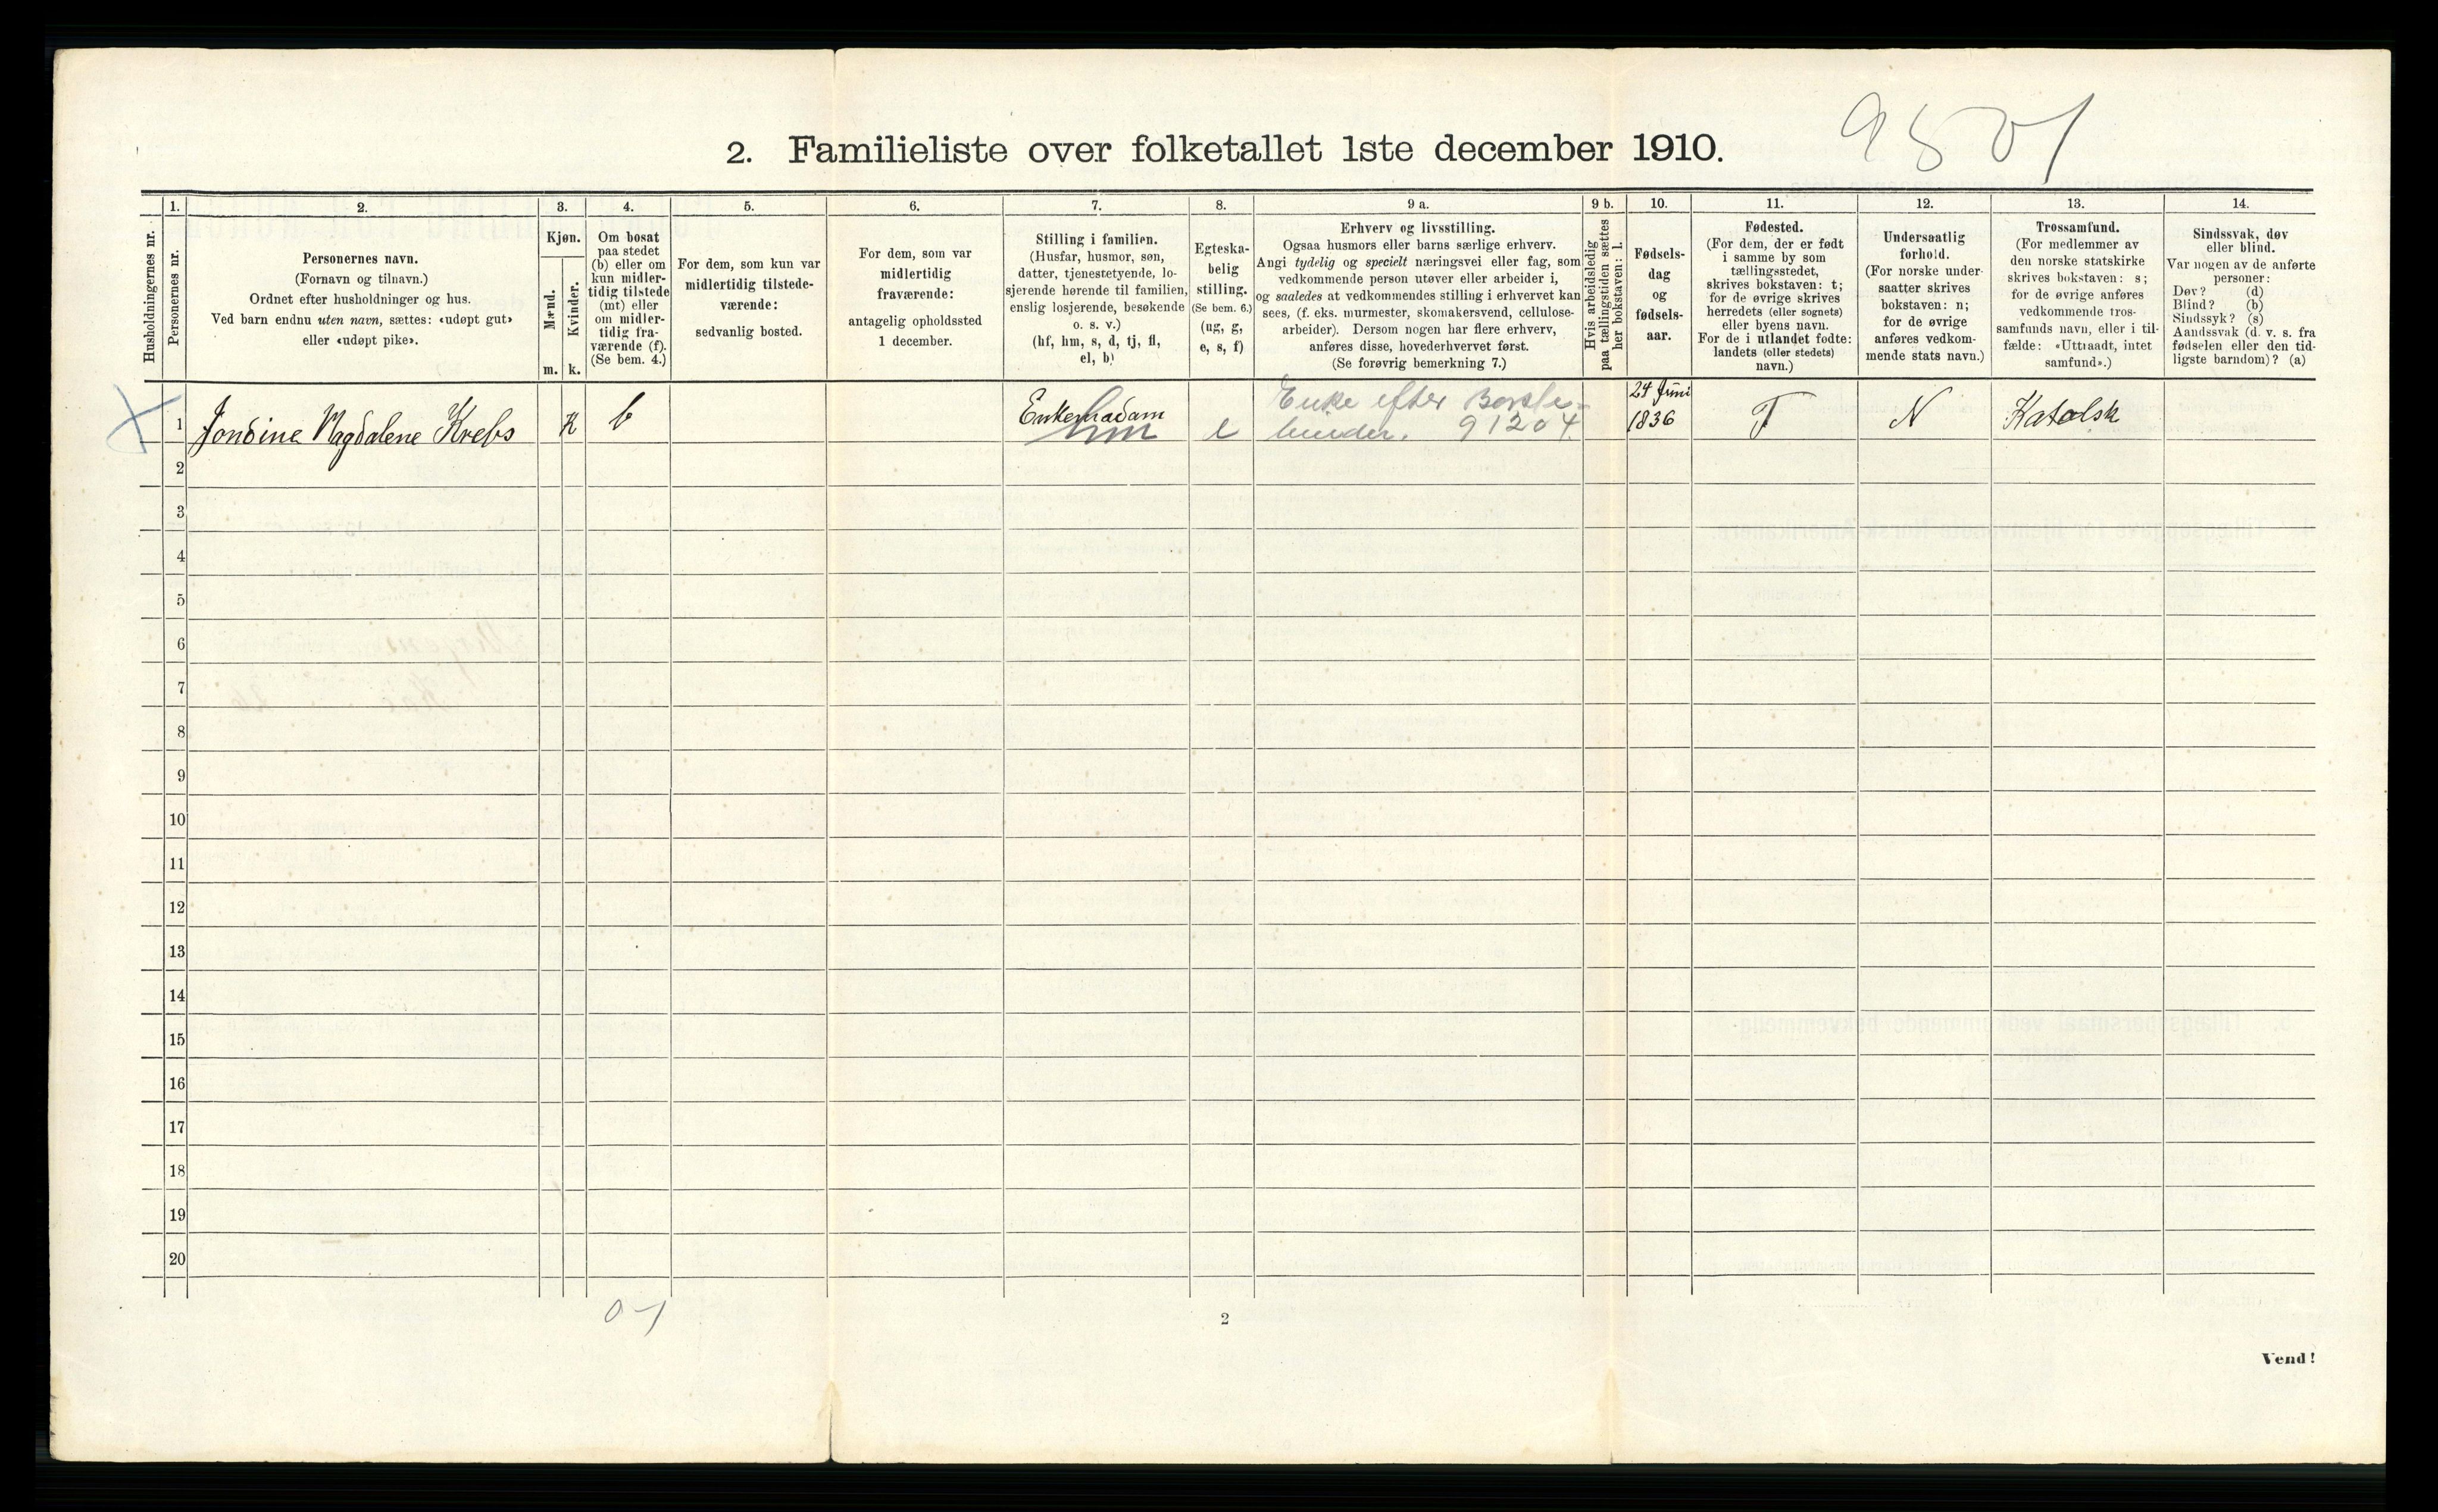 9801
2. Familieliste over folketallet 1ste december 1910.
Husholdningernes nr.
1.
Personernes nr.
2.
Personernes navn.
(Fornavn og tilnavn.)
Ordnet efter husholdninger og hus.
Ved barn endnu uten navn, sættes: «udøpt gut»
eller «udøpt pike».
3.
Kjøn.
Mænd.
Kvinder.
m.
k.
4.
Om bosat
paa stedet
(b) eller om
kun midler-
tidig tilstede
(mt) eller
om midler-
tidig fra-
værende (f).
(Se bem. 4.)
5.
For dem, som kun var
midlertidig tilstede-
værende:
sedvanlig bosted.
6.
For dem, som var
midlertidig
fraværende:
antagelig opholdssted
1 december.
7.
Stilling i familien.
(Husfar, husmor, søn,
datter, tjenestetyende, lo-
sjerende hørende til familien,
enslig losjerende, besøkende
o. s. v.)
(hf, hm, s, d, tj, fl,
el, b)
8.
Egteska-
belig
stilling.
(Se bem. 6.)
(ug, g,
e, s, f)
9 a.
Erhverv og livsstilling.
Ogsaa husmors eller barns særlige erhverv.
Angi tydelig og specielt næringsvei eller fag, som
vedkommende person utøver eller arbeider i,
og saaledes at vedkommendes stilling i erhvervet kan
sees, (f. eks. murmester, skomakersvend, cellulose-
arbeider). Dersom nogen har flere erhverv,
anføres disse, hovederhvervet først.
(Se forøvrig bemerkning 7.)
9 b.
Hvis arbeidsledig
paa tællingstiden sættes
her bokstaven: l.
10.
Fødsels-
dag
og
fødsels-
aar.
11.
Fødested.
(For dem, der er født
i samme by som
tællingsstedet,
skrives bokstaven: t;
for de øvrige skrives
herredets (eller sognets)
eller byens navn.
For de i utlandet fødte:
landets (eller stedets)
navn.)
12.
Undersaatlig
forhold.
(For norske under-
saatter skrives
bokstaven: n;
for de øvrige
anføres vedkom-
mende stats navn.)
13.
Trossamfund.
(For medlemmer av
den norske statskirke
skrives bokstaven: s;
for de øvrige anføres
vedkommende tros-
samfunds navn, eller i til-
fælde: «Uttraadt, intet
samfund».)
14.
Sindssvak, døv
eller blind.
Var nogen av de anførte
personer:
Døv? (d)
Blind? (b)
Sindssyk? (s)
Aandssvak (d. v. s. fra
fødselen eller den tid-
ligste barndom)? (a)
1 Jondine Magdalene Krebs K b Enkemadam hm e Enke efter Børste-
binder. 91204. 24 Juni
1836 T N Katolsk
2
3
4
5
6
7
8
9
10
11
12
13
14
15
16
17
18
19
20
0-1
2
Vend!